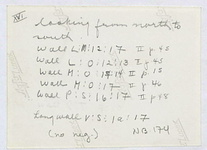 IV.
looking from north to
south
Wall L: M: 12: 17 II p. 45
Wall L: O: 12: 13 II p. 45
Wall M: O: 17 14 II p. 15
Wall M: O: 17 II p. 46
Wall P: S: 16: 17 II p. 48
Long wall V: S: 12: 17
(no neg.) NB 174